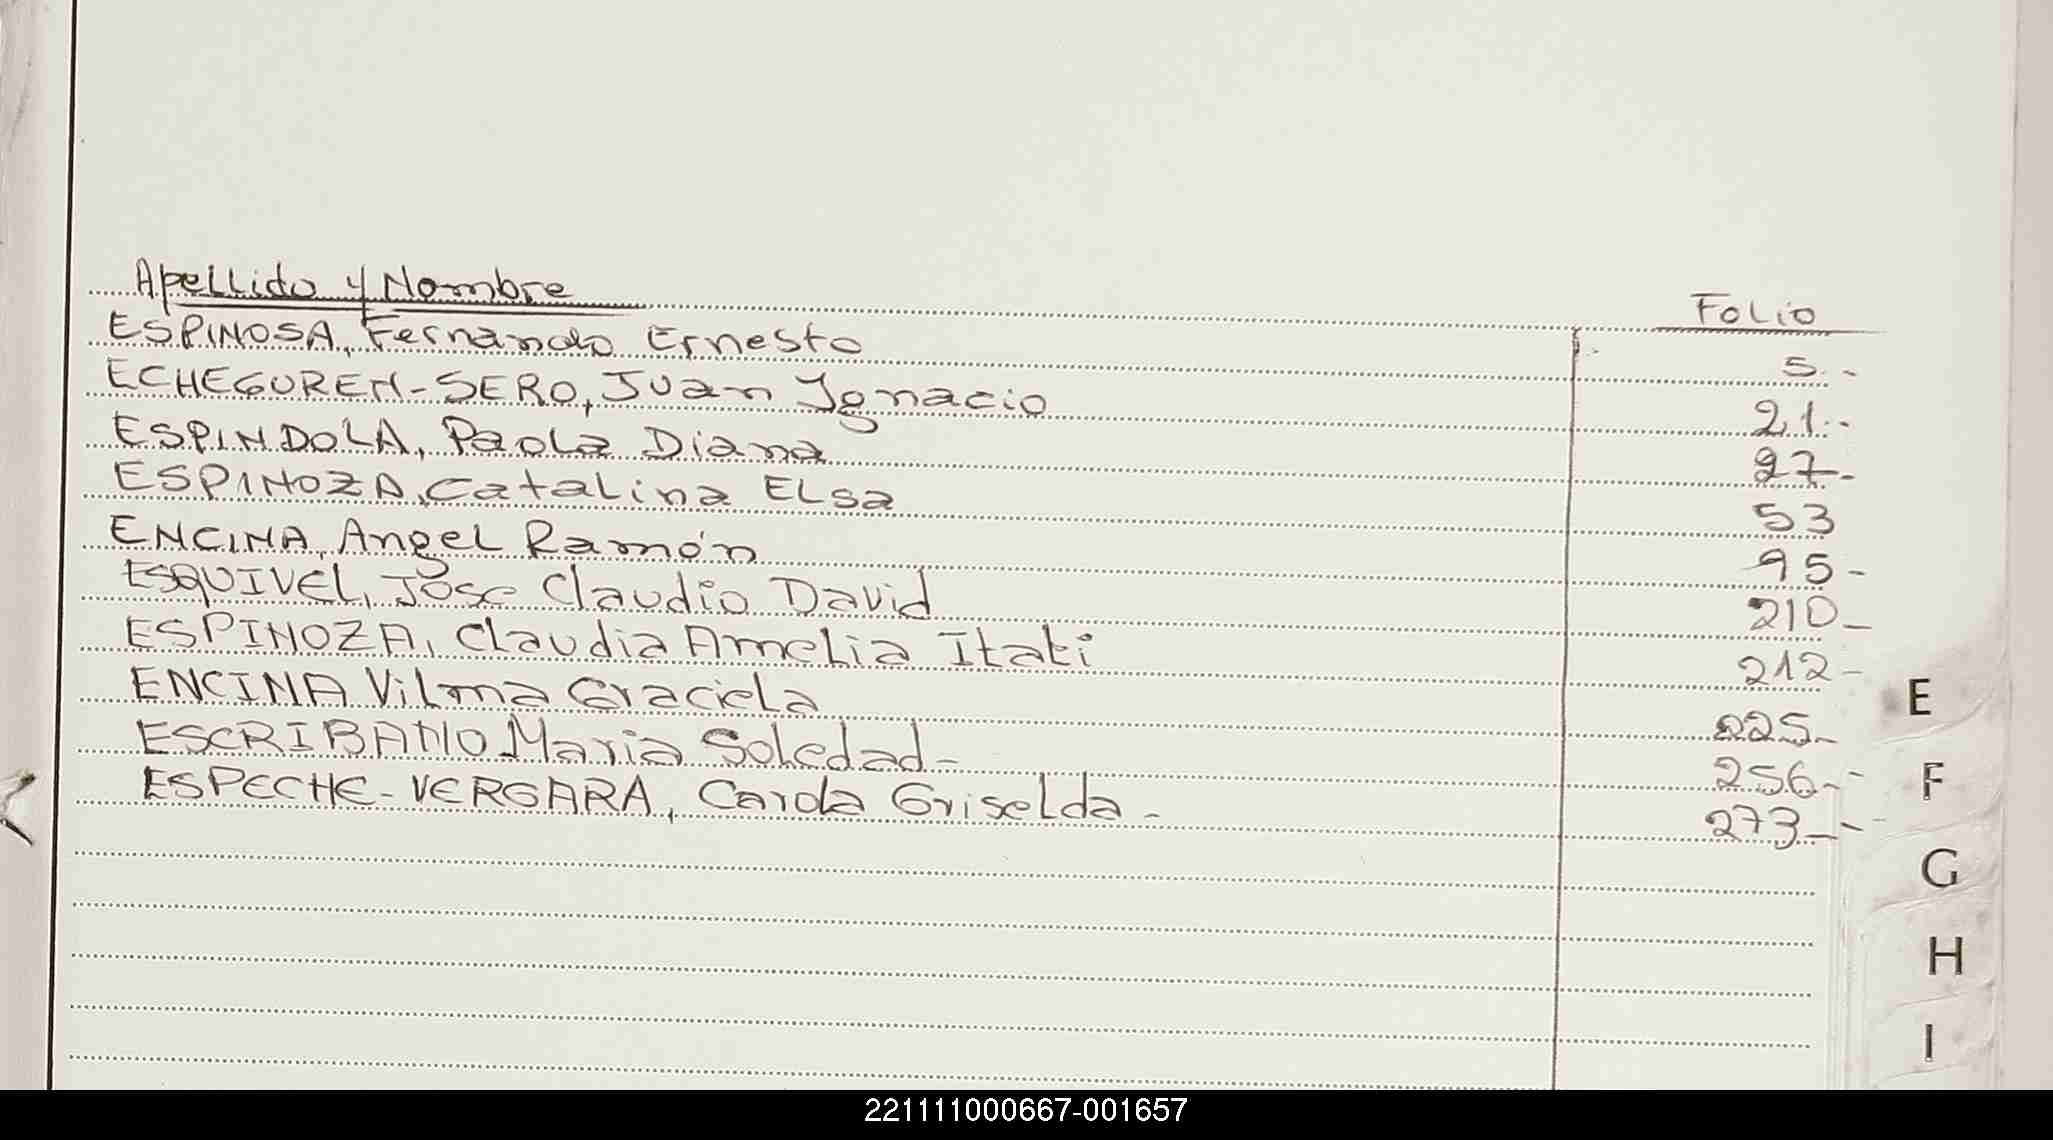 Apellido y Nombre Folio
ESPINOSA, Fernando Ernesto 5.-
ECHEGUREN-SERO, Juan Ignacio 21.-
ESPINDOLA, Paola Diana 27-
ESPINOZA, Catalina Elsa 53
ENCINA, Angel Ramón 95-
ESQUIVEL, Jose Claudio David 210-
ESPINOZA, Claudia Amelia Itati 212-
ENCINA Vilma Graciela 225-
ESCRIBANO Maria Soledad- 256--
ESPECHE-VERGARA, Carola Griselda- 273--
E
F
G
H
I
221111000667-001657